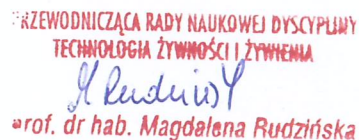 RZEWODNICZĄCA RADY NAUKOWEJ DYSCYPLINY
TECHNOLOGIA ŻYWNOŚCI I ŻYWIENIA
M Rudzińs
prof. dr hab. Magdalena Rudzińska